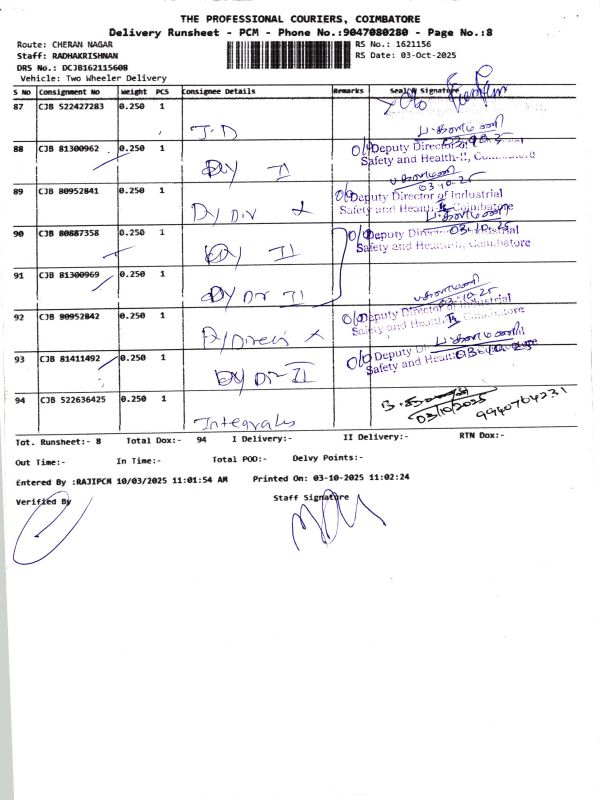 THE PROFESSIONAL COURIERS, COIMBATORE
Delivery Runsheet - PCM - Phone No.:9047080280 - Page No.:8
Route: CHERAN NAGAR RS No.: 1621156
Staff: RADHAKRISHNAN RS Date: 03-Oct-2025
DRS No.: DCJB162115608
Vehicle: Two Wheeler Delivery
S No Consignment No Weight PCS Consignee Details Remarks Seal& Signature
87 CJB 522427283 0.250 1 J.D
88 CJB 81300962 0.250 1 Dy II
Deputy Director
Safety and Health-II, Coimbatore
89 CJB 80952841 0.250 1 Dy Dir
03.10.25
Deputy Director of Industrial
Safety and Health-II, Coimbatore
90 CJB 80887358 0.250 1 Dy II
03.10.25
Deputy Director of Industrial
Safety and Health-II, Coimbatore
91 CJB 81300969 0.250 1 Dy Dir II
92 CJB 80952842 0.250 1
03.10.25
Deputy Director of Industrial
Safety and Health-II, Coimbatore
93 CJB 81411492 0.250 1 Dy Dir II
Deputy
Safety and Health
03.10.25
94 CJB 522636425 0.250 1
03/10/2025
Tot. Runsheet:- 8 Total Dox:- 94 I Delivery:- II Delivery:- RTN Dox:-
Out Time:- In Time:- Total POD:- Delvy Points:-
Entered By :RAJIPCM 10/03/2025 11:01:54 AM Printed On: 03-10-2025 11:02:24
Verified By Staff Signature